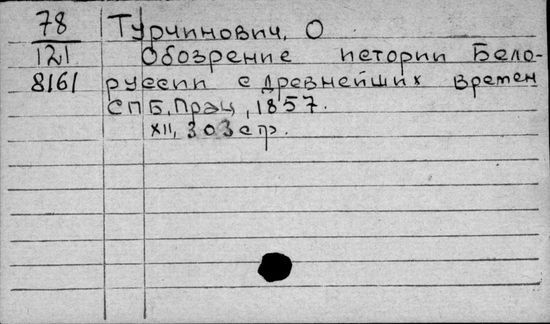 78 Турчинович, О
121 Обозрение истории Бело-
8161 руссии с древнейших времен
СПБ, Прац, 1857.
XII, 303 стр.